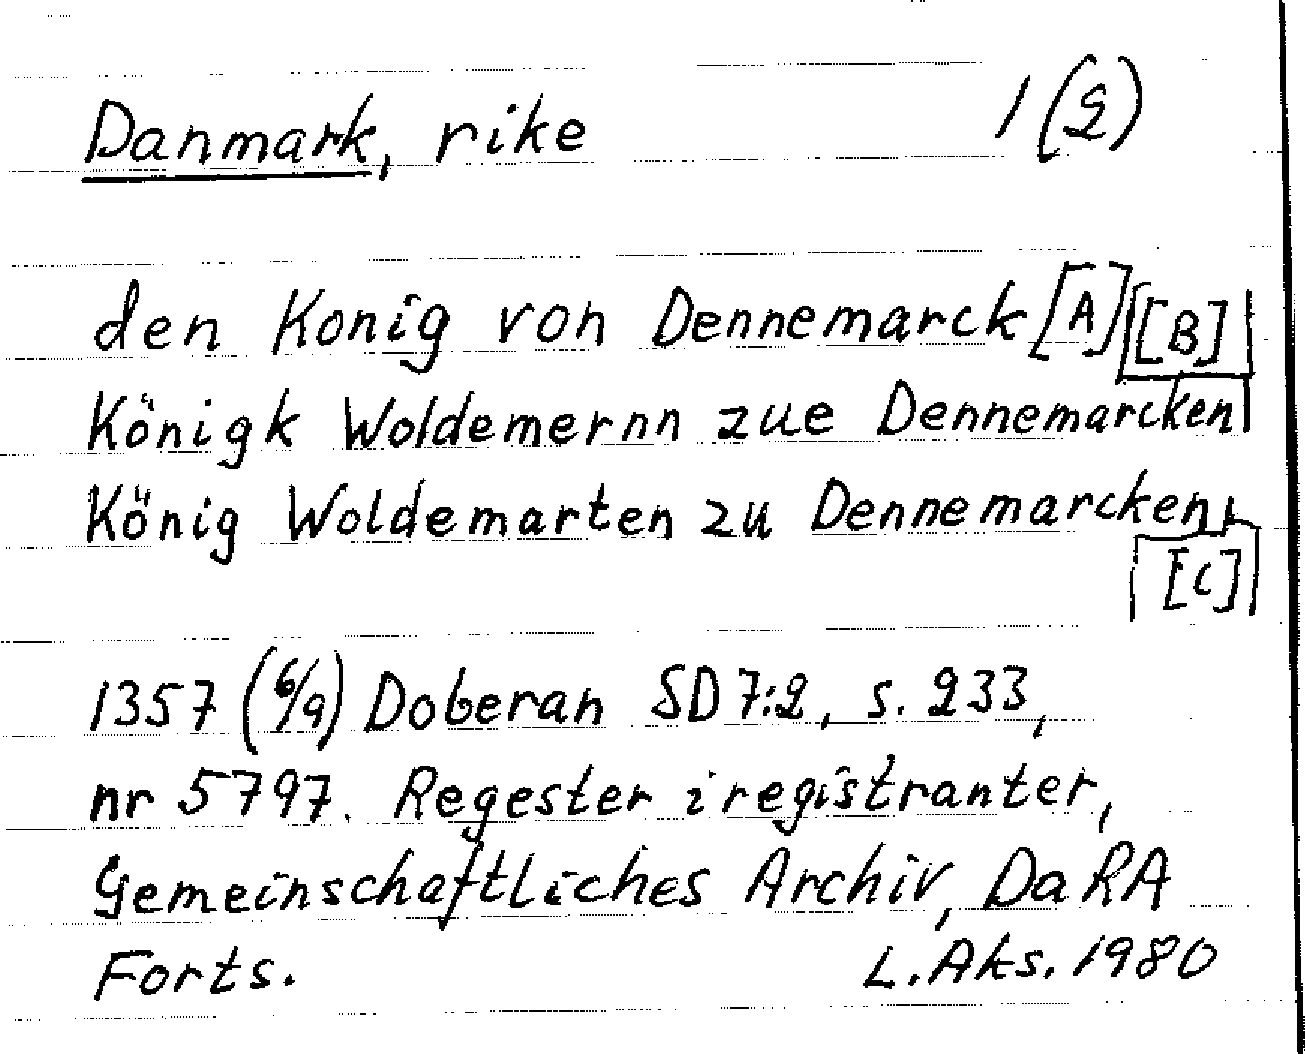 Danmark, rike 1 (2)
den Konig von Dennemarck [A]
[B]
Königk Woldemernn zue Dennemarcken
König Woldemarten zu Dennemarcken
[C]
1357 (6/9) Doberan SD 7:2, s. 233,
nr 5797. Regester i registranter,
Gemeinschaftliches Archiv, DaRA
Forts. L. Aks. 1980